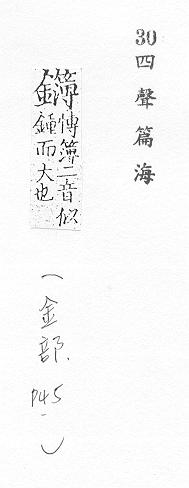 30 四聲篇海
愽簿二音似
鍾而大也
(金部. P45)